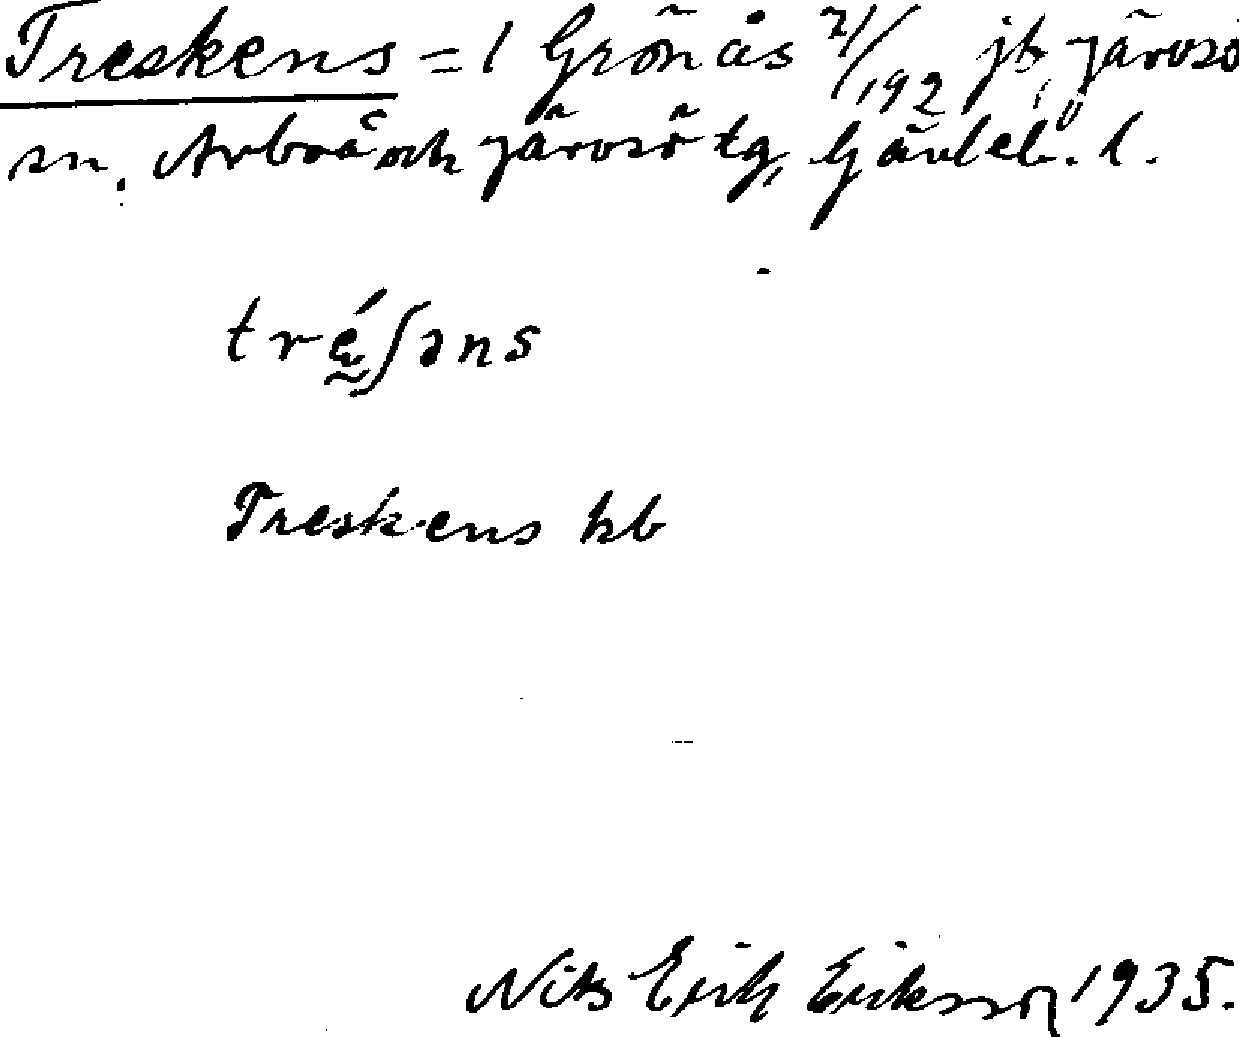 Treskens = 1 Grönås 21/192 jb, Järvsö
sn, Arbrå och Järvsö tg, Gävleb. l.
trḛ́ʃəns
Treskens kb
Nils Erik Eriksson 1935.